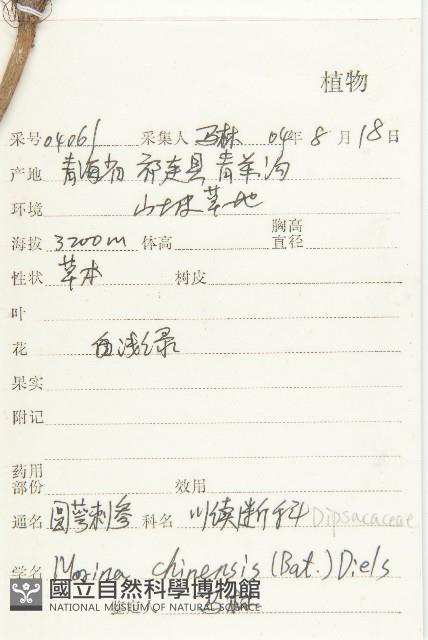 植物
采号 04061 采集人 马林 04年 8 月 18 日
产地 青海省 祁连县 青羊沟
环境 山坡草地
胸高
海拔 3200m 体高 直径
性状 草本 树皮
叶
花 白浅绿
果实
附记
药用
部份 效用
通名 圆萼刺参 科名 川续断科 Dipsacaceae
学名 Morina chinensis (Bat.) Diels
國立自然科學博物館
NATIONAL MUSEUM OF NATURAL SCIENCE